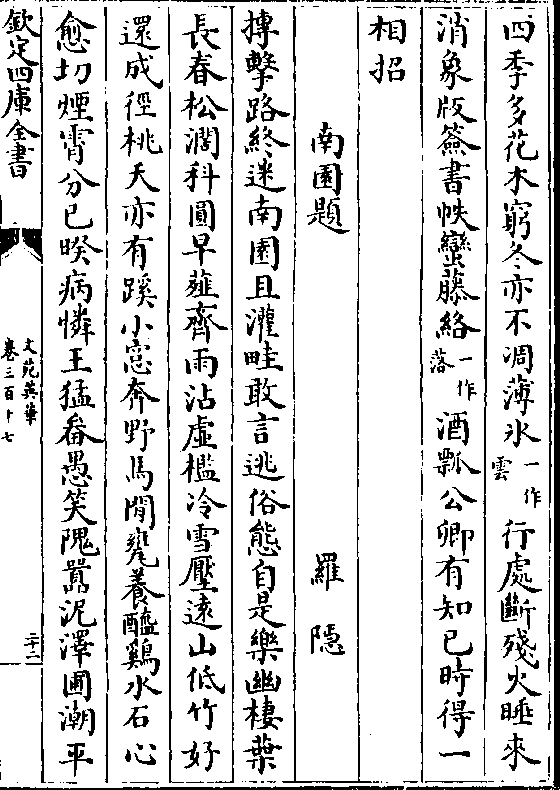 四季多花木窮冬亦不凋薄氷一作雲行處斷殘火睡來
消象版簽書帙蠻藤絡一作落酒瓢公卿有知已時得一
相招
南園題 羅隱
摶擊路終迷南園且灌畦敢言逃俗態自是樂幽棲葉
長春松濶科圓早薤齊雨沾虚檻冷雪壓逺山低竹好
還成徑桃夭亦有蹊小窓奔野馬閒甕養醯鷄水石心
愈切煙霄分已暌病憐王猛畚愚笑隗囂泥澤圃潮平
欽定四庫全書
文苑英華
卷三百十七
二十二